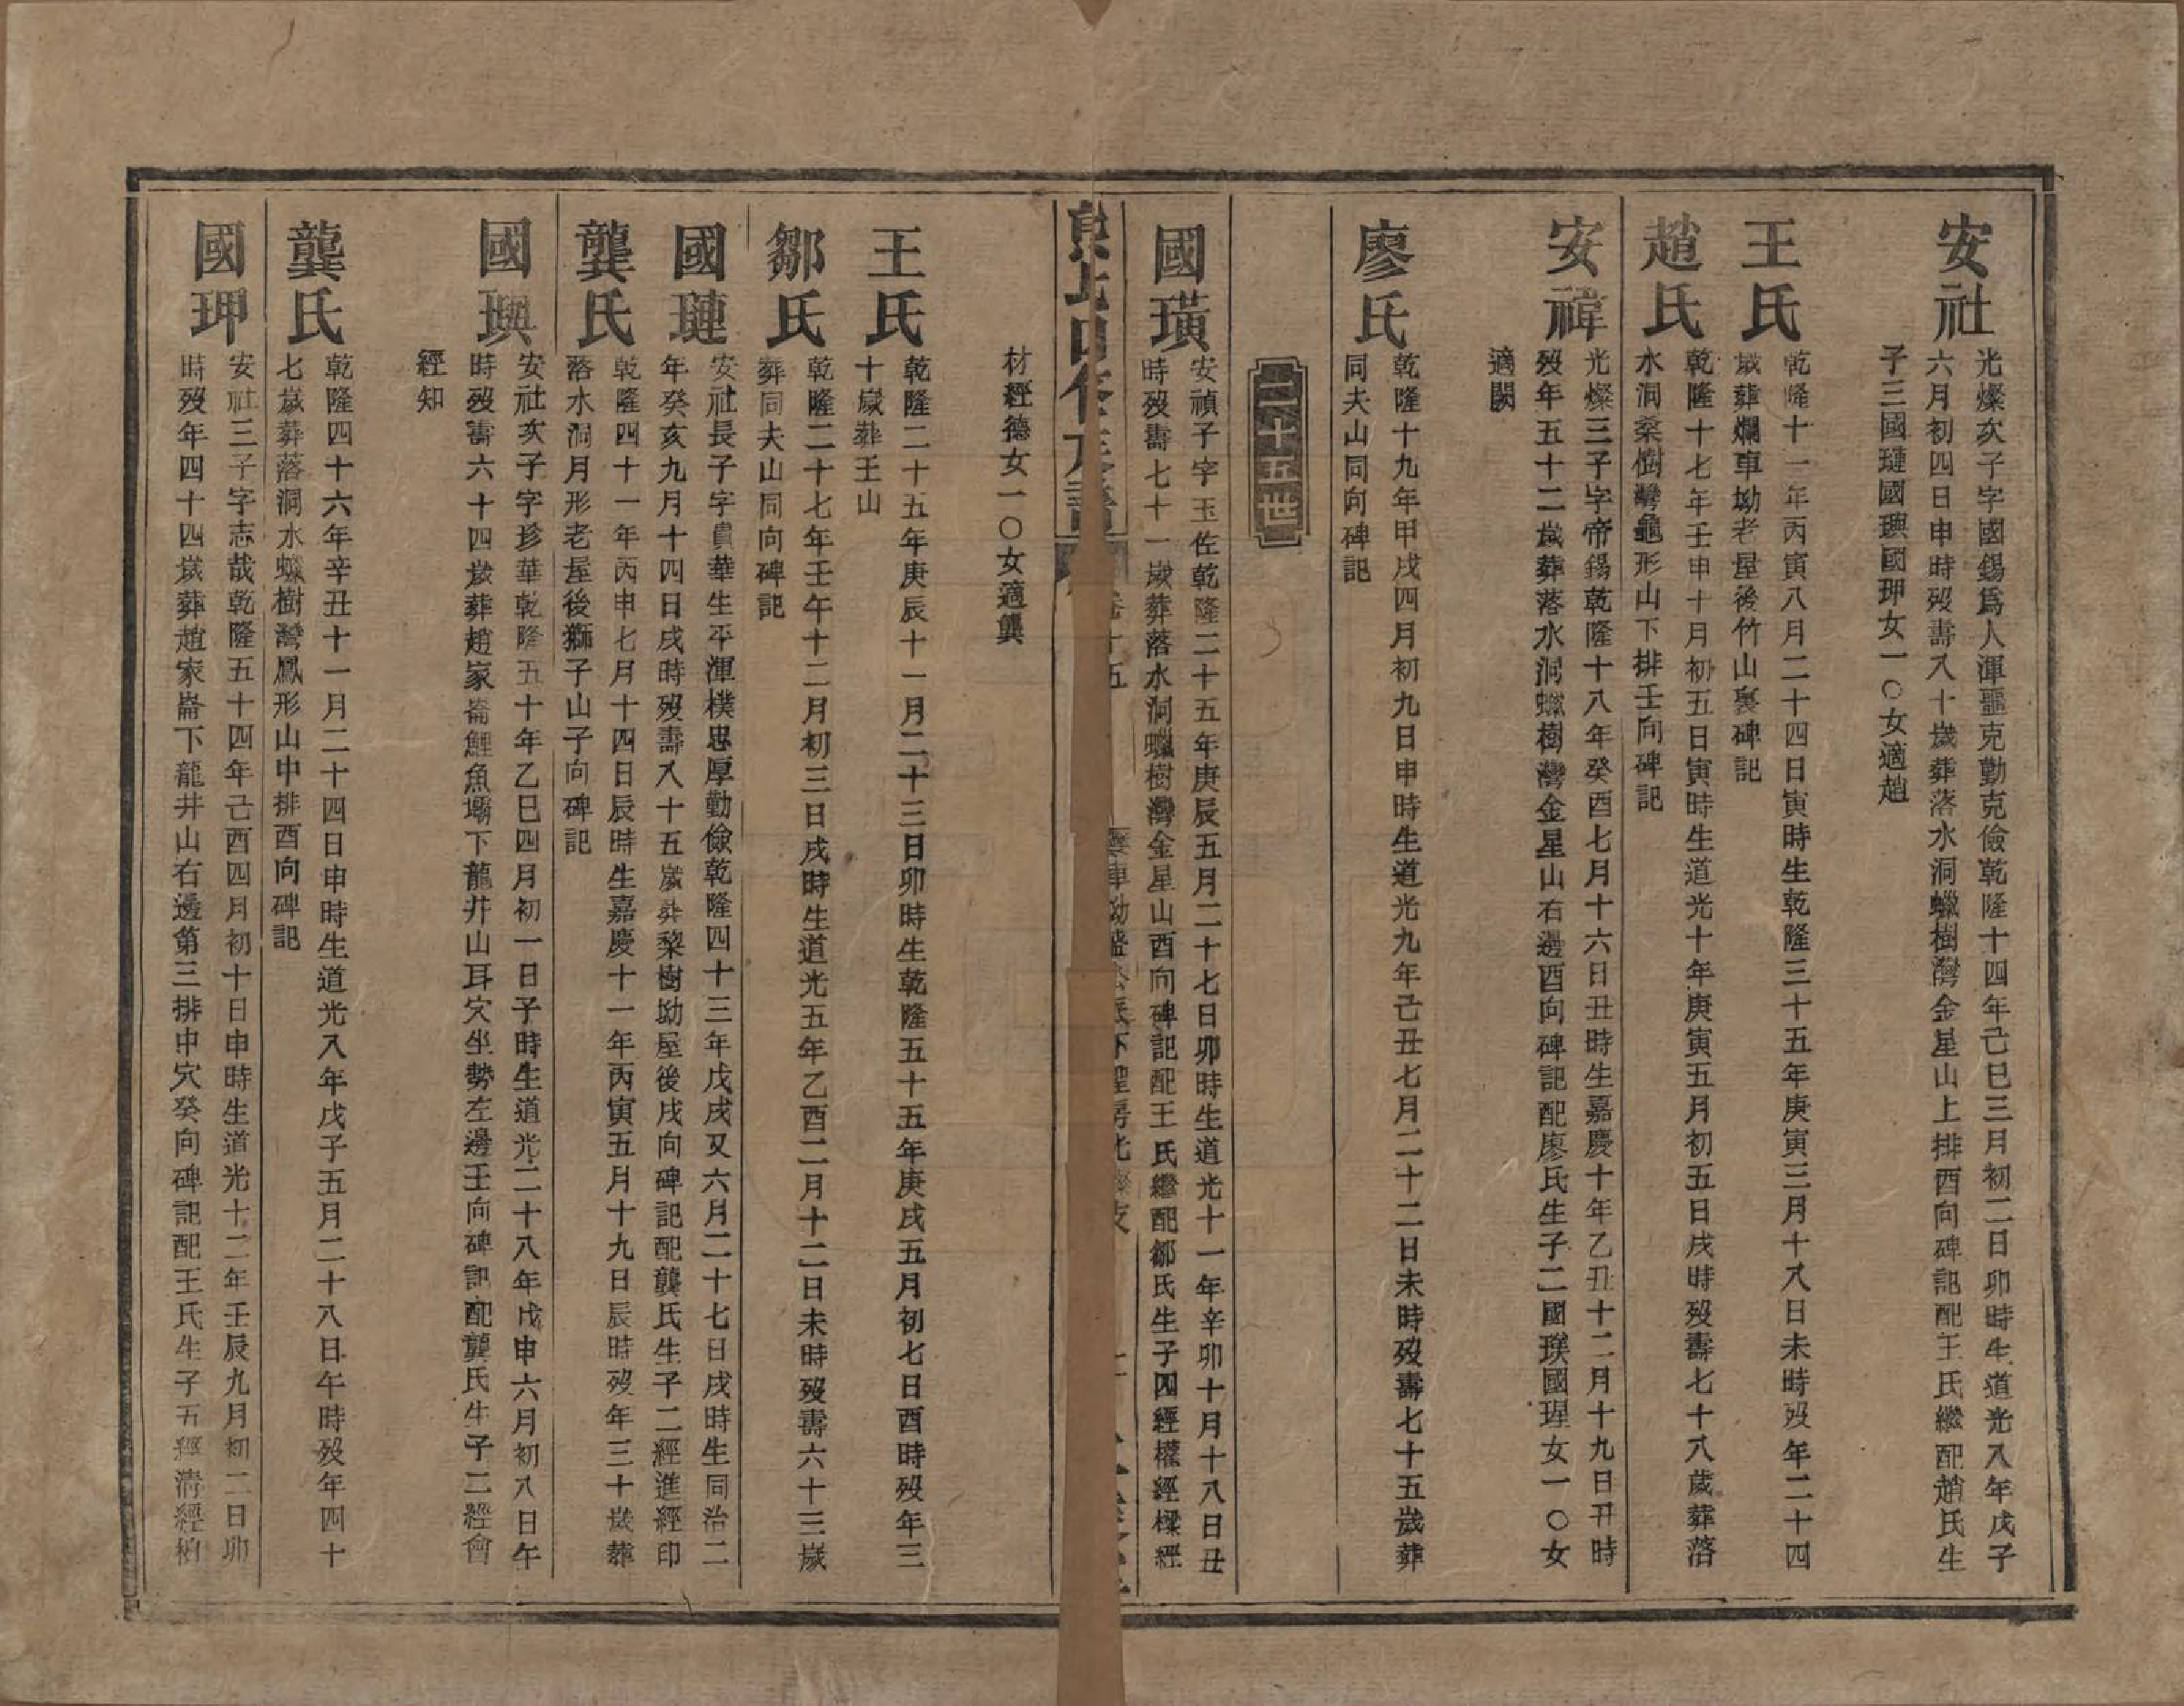 安社
光燦次子字國錫爲人渾噩克勤克儉乾隆十四年己巳三月初二日卯時生道光八年戊子
六月初四日申時歿壽八十歲葬落水洞蠟樹灣金星山上排酉向碑記配王氏繼配趙氏生
子三國璉國璵國玾女一〇女適趙
王氏
乾隆十一年丙寅八月二十四日寅時生乾隆三十五年庚寅三月十八日未時歿年二十四
歲葬爛車坳老屋後竹山裏碑記
趙氏
乾隆十七年壬申十月初五日寅時生道光十年庚寅五月初五日戌時歿壽七十八歲葬落
水洞桑樹灣龜形山下排壬向碑記
安禕
光燦三子字帝錫乾隆十八年癸酉七月十六日丑時生嘉慶十年乙丑十二月十九日丑時
歿年五十二歲葬落水洞蠟樹灣金星山右邊酉向碑記配廖氏生子二國璞國瑆女一〇女
適闕
廖氏
乾隆十九年甲戌四月初九日申時生道光九年己丑七月二十二日未時歿壽七十五歲葬
同夫山同向碑記
二十五世
國璜
安禎子字玉佐乾隆二十五年庚辰五月二十七日卯時生道光十一年辛卯十月十八日丑
時歿壽七十一歲葬落水洞蠟樹灣金星山酉向碑記配王氏繼配鄒氏生子四經權經樑經
卷十五
材經德女一〇女適龔
王氏
乾隆二十五年庚辰十一月二十三日卯時生乾隆五十五年庚戌五月初七日酉時歿年三
十歲葬壬山
鄒氏
乾隆二十七年壬午十二月初三日戌時生道光五年乙酉二月十二日未時歿壽六十三歲
葬同夫山同向碑記
國璉
安社長子字貴華生平渾樸忠厚勤儉乾隆四十三年戊戌又六月二十七日戌時生同治二
年癸亥九月十四日戌時歿壽八十五歲葬黎樹坳屋後戌向碑記配龔氏生子二經進經印
龔氏
乾隆四十一年丙申七月十四日辰時生嘉慶十一年丙寅五月十九日辰時歿年三十歲葬
落水洞月形老屋後獅子山子向碑記
國璵
安社次子字珍華乾隆五十年乙巳四月初一日子時生道光二十八年戊申六月初八日午
時歿壽六十四歲葬趙家崙鯉魚壩下龍井山耳穴坐勢左邊壬向碑記配龔氏生子二經會
經知
龔氏
乾隆四十六年辛丑十一月二十四日申時生道光八年戊子五月二十八日午時歿年四十
七歲葬落洞水蠟樹灣鳳形山中排酉向碑記
國玾
安社三子字志哉乾隆五十四年己酉四月初十日申時生道光十二年壬辰九月初二日卯
時歿年四十四歲葬趙家崙下龍井山右邊第三排中穴癸向碑記配王氏生子五經清經柏